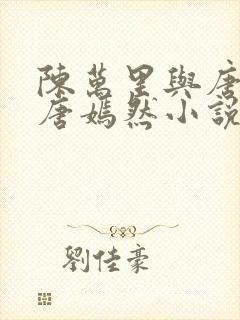 陳萬里與唐
唐嫣然小說
劉佳豪